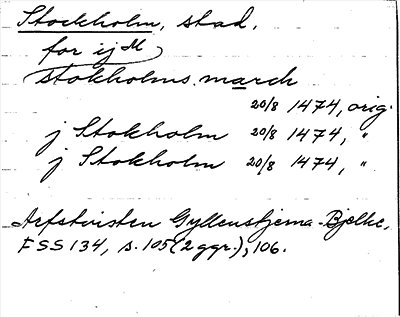 Stockholm, stad,
for ij M
stokholms march
20/8 1474, orig.
j Stokholm 20/8 1474, "
j Stokholm 20/8 1474, "
Arfstvisten Gyllenstjerna-Bjelke,
FSS 134, s. 105 (2 ggr.), 106.